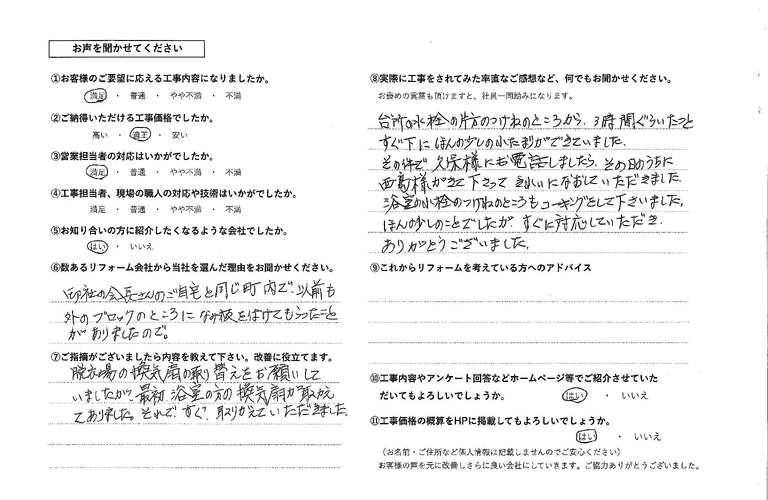 お声を聞かせてください
①お客様のご要望に応える工事内容になりましたか。
満足 ・ 普通 ・ やや不満 ・ 不満
②ご納得いただける工事価格でしたか。
高い ・ 適正 ・ 安い
③営業担当者の対応はいかがでしたか。
満足 ・ 普通 ・ やや不満 ・ 不満
④工事担当者、現場の職人の対応や技術はいかがでしたか。
満足 ・ 普通 ・ やや不満 ・ 不満
⑤お知り合いの方に紹介したくなるような会社でしたか。
はい ・ いいえ
⑥数あるリフォーム会社から当社を選んだ理由をお聞かせください。
御社の会長さんのご自宅と同じ町内で以前も
外のブロックのところに 板をはけてもらったこと
がありましたので。
⑦ご指摘がございましたら内容を教えて下さい。改善に役立てます。
脱衣場の換気扇の取り替えをお願いして
いましたが、最初浴室の方の換気扇が取かえ
てありました。それで、すぐ、取りかえていただきました
⑧実際に工事をされてみた率直なご感想など、何でもお聞かせください。
お褒めの言葉も頂けますと、社員一同励みになります。
台所の水栓の片方のつけねのところから、3時間ぐらいたつと
すぐ下にほんの少しの水たまりができていました。
その件で久保様にお電話しましたら、その日のうちに
様がきて下さって きれいになおしていただきました。
浴室の水栓のつけねのところもコーキングをして下さいました。
ほんの少しのことでしたが、すぐに対応していただき、
ありがとうございました。
⑨これからリフォームを考えている方へのアドバイス
⑩工事内容やアンケート回答などホームページ等でご紹介させていた
だいてもよろしいでしょうか。 はい ・ いいえ
⑪工事価格の概算をHPに掲載してもよろしいでしょうか。
はい ・ いいえ
（お名前・ご住所など個人情報は記載しませんのでご安心ください）
お客様の声を元に改善しさらに良い会社にしていきます。ご協力ありがとうございました。